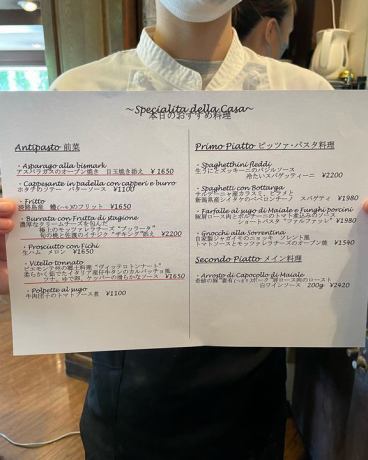 ~Specialita della Casa~
本日のおすすめ料理
Antipasto 前菜
・Asparago alla bismark
アスパラガスのオーブン焼き 目玉焼き添え ¥1650
・Cappesante in padella con capperi e burro
ホタテのソテー バターソース ¥1100
・Fritto
のフリット ¥1650
・Burrata con Frutta di stagione
濃厚なクリームチーズを包んだ
極上のモッツァレラチーズ "ブッラータ"
旬の桃と佐渡のイチジク "サルシング"添え ¥2200
・Prosciutto con Fichi
生ハム メロン ¥1650
・Vitello tonnato
ピエモンテ州の郷土料理 "ヴィッテロトンナート"
柔らかく茹でたイタリア産仔牛タンのカルパッチョ風
ツナ、ゆで卵、ケッパーの滑らかなソース ¥1650
・Polpette al sugo
牛肉団子のトマトソース煮 ¥1100
Primo Piatto ピッツァ・パスタ料理
・Spaghettini fleddi
生うにとズッキーニのバジルソース
冷たいスパゲッティーニ ¥2200
・Spaghetti con Bottarga
サルデーニャ産カラスミ、アサリと
スパゲティ ¥1980
・Farfalle al sugo di Maiale e Funghi porcini
豚肩ロース肉とポルチーニのトマト煮込みのソース
ショートパスタ "ファルファッレ" ¥1980
・Gnocchi alla Sorrentina
自家製ジャガイモのニョッキ ソレント風
トマトソースとモッツァレラチーズのオーブン焼 ¥1540
Secondo Piatto メイン料理
・Arrosto di Capocollo di Maiale
肩ロース肉のロースト
白ワインソース 200g ¥2420